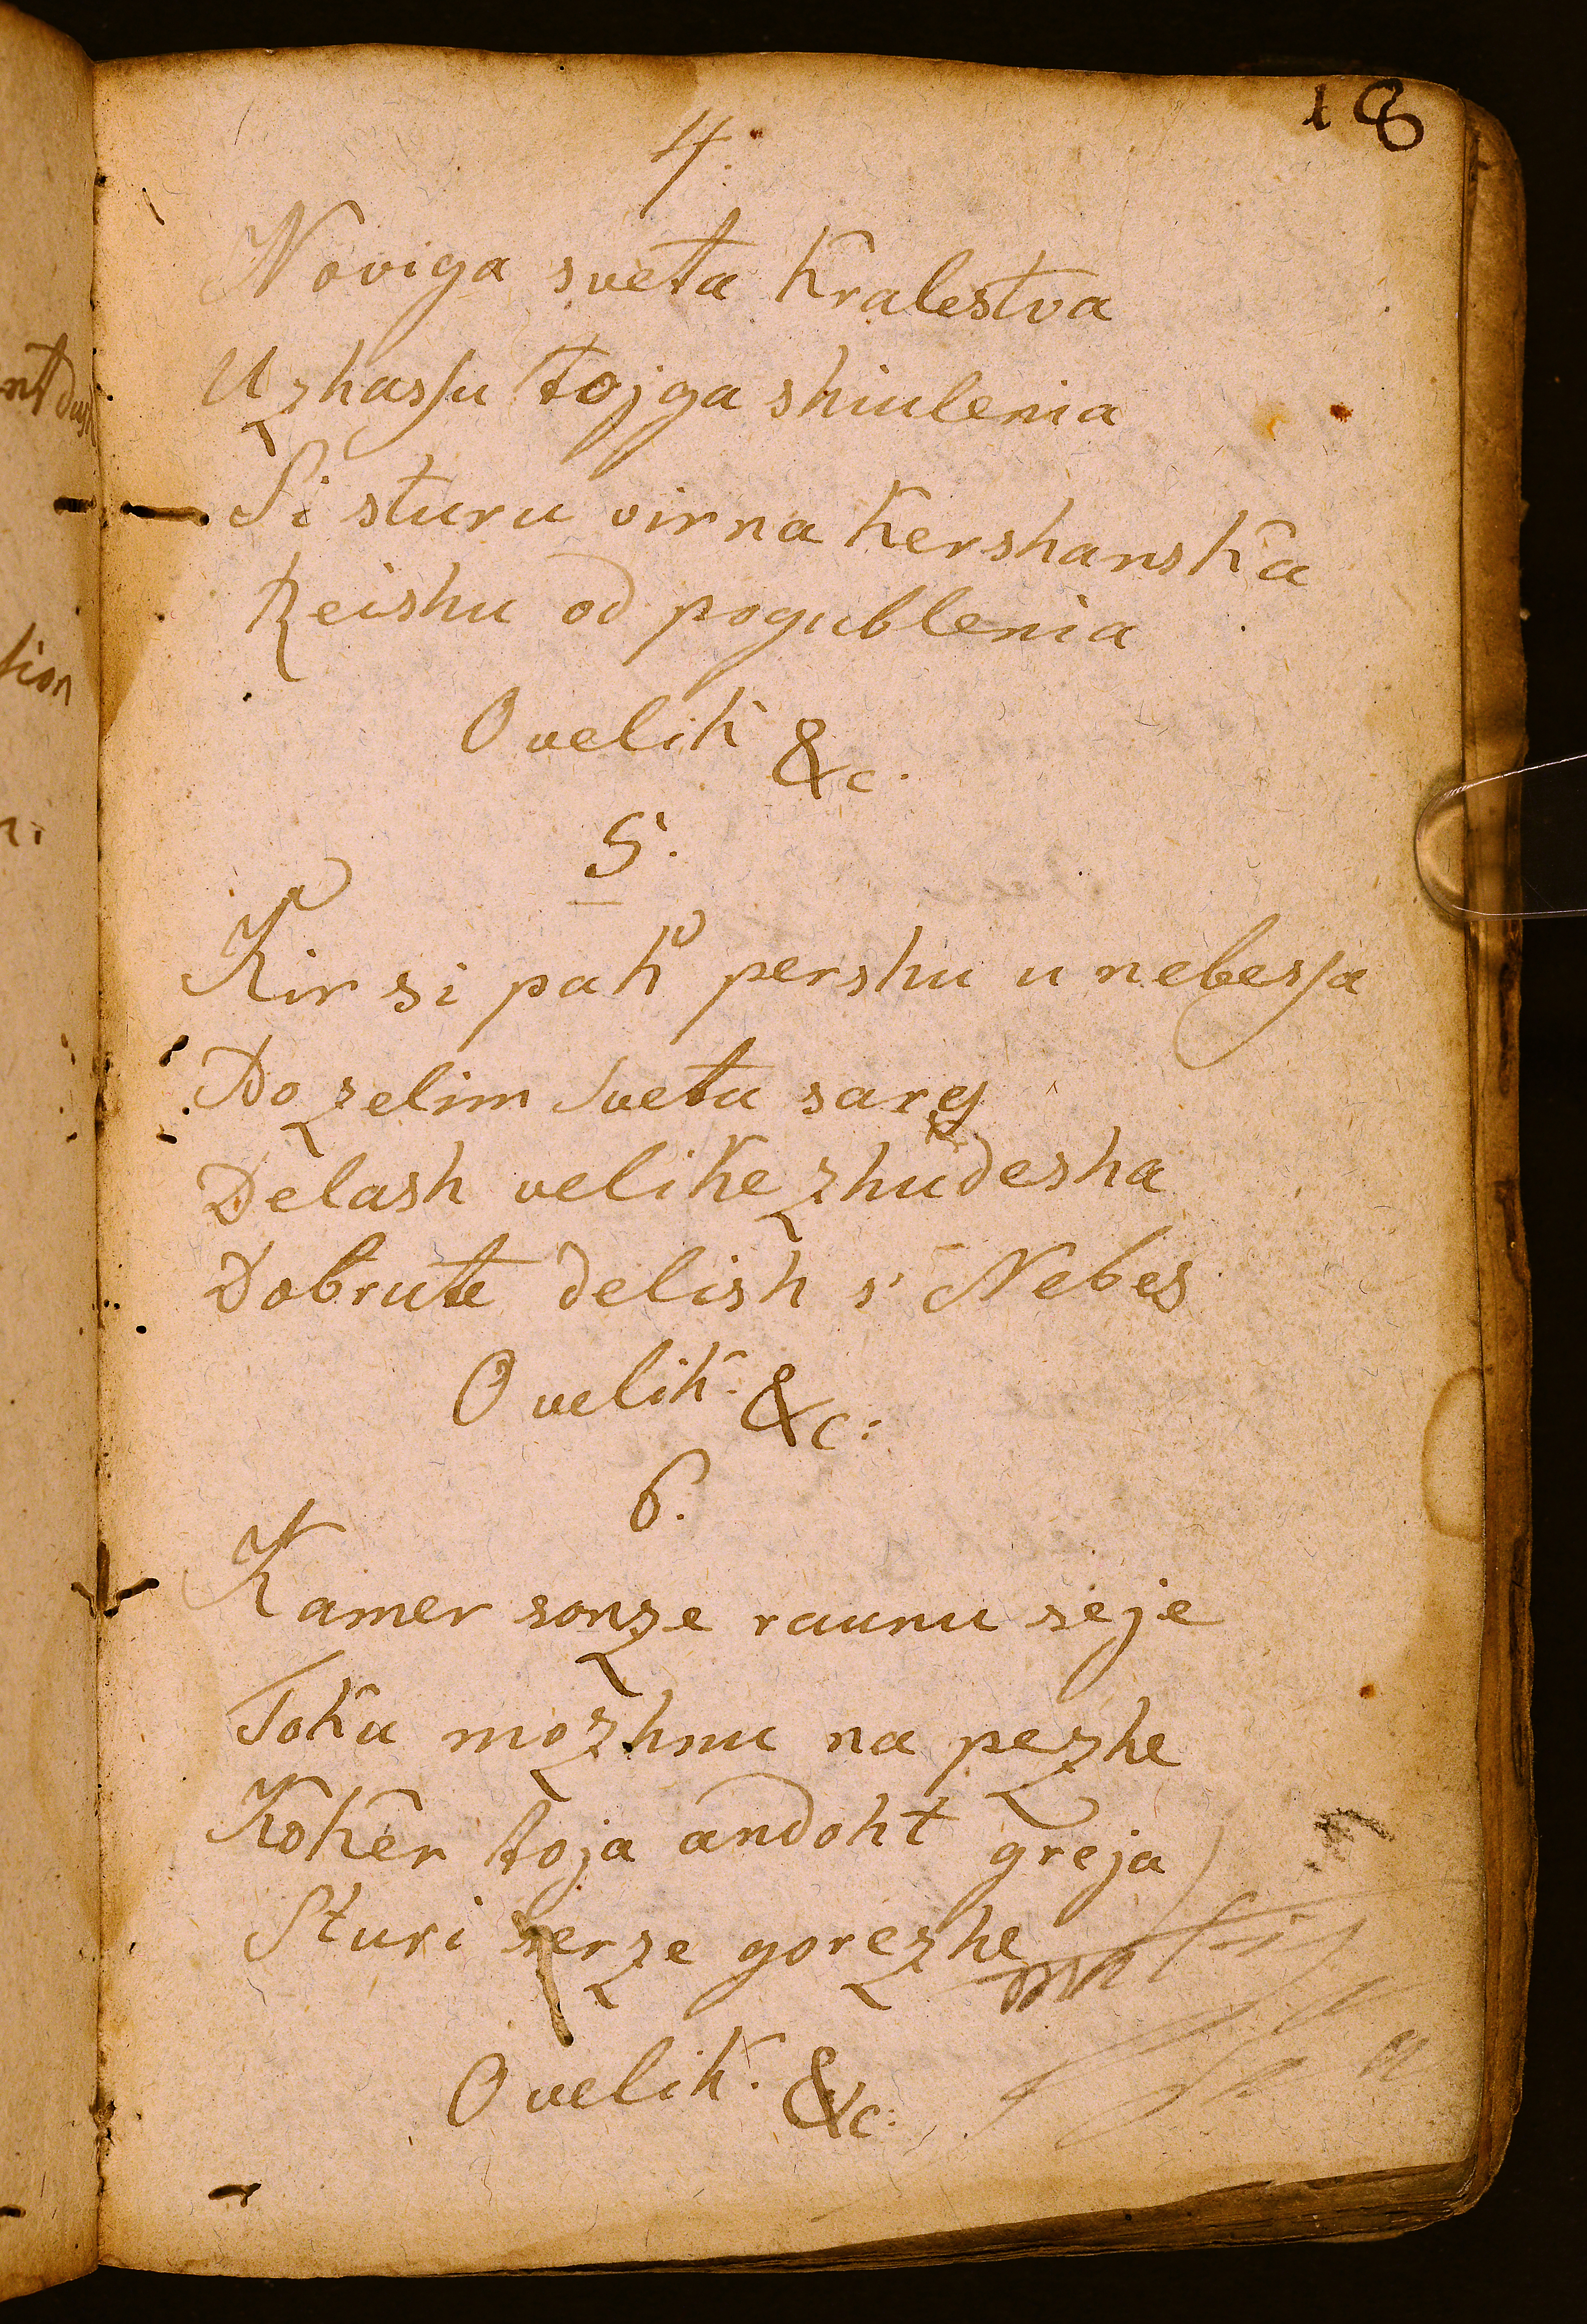 18
4.
Noviga sveta Kralestva
Uzhassu tojga shiulenia
Si sturu virna Kershanska
Reishu od pogublenia
O velik &c.
5.
Kir si pak pershu u nebessa
Do zelim svetu sarez
Delash velike zhudesha
Dobrute delish s' Nebes
O velik. &c:
6.
Kamer sonze raunu seje
Toku mozhnu na pezhe
Koker toja andoht greja
Sturi serze gorezhe
O velik. &c: